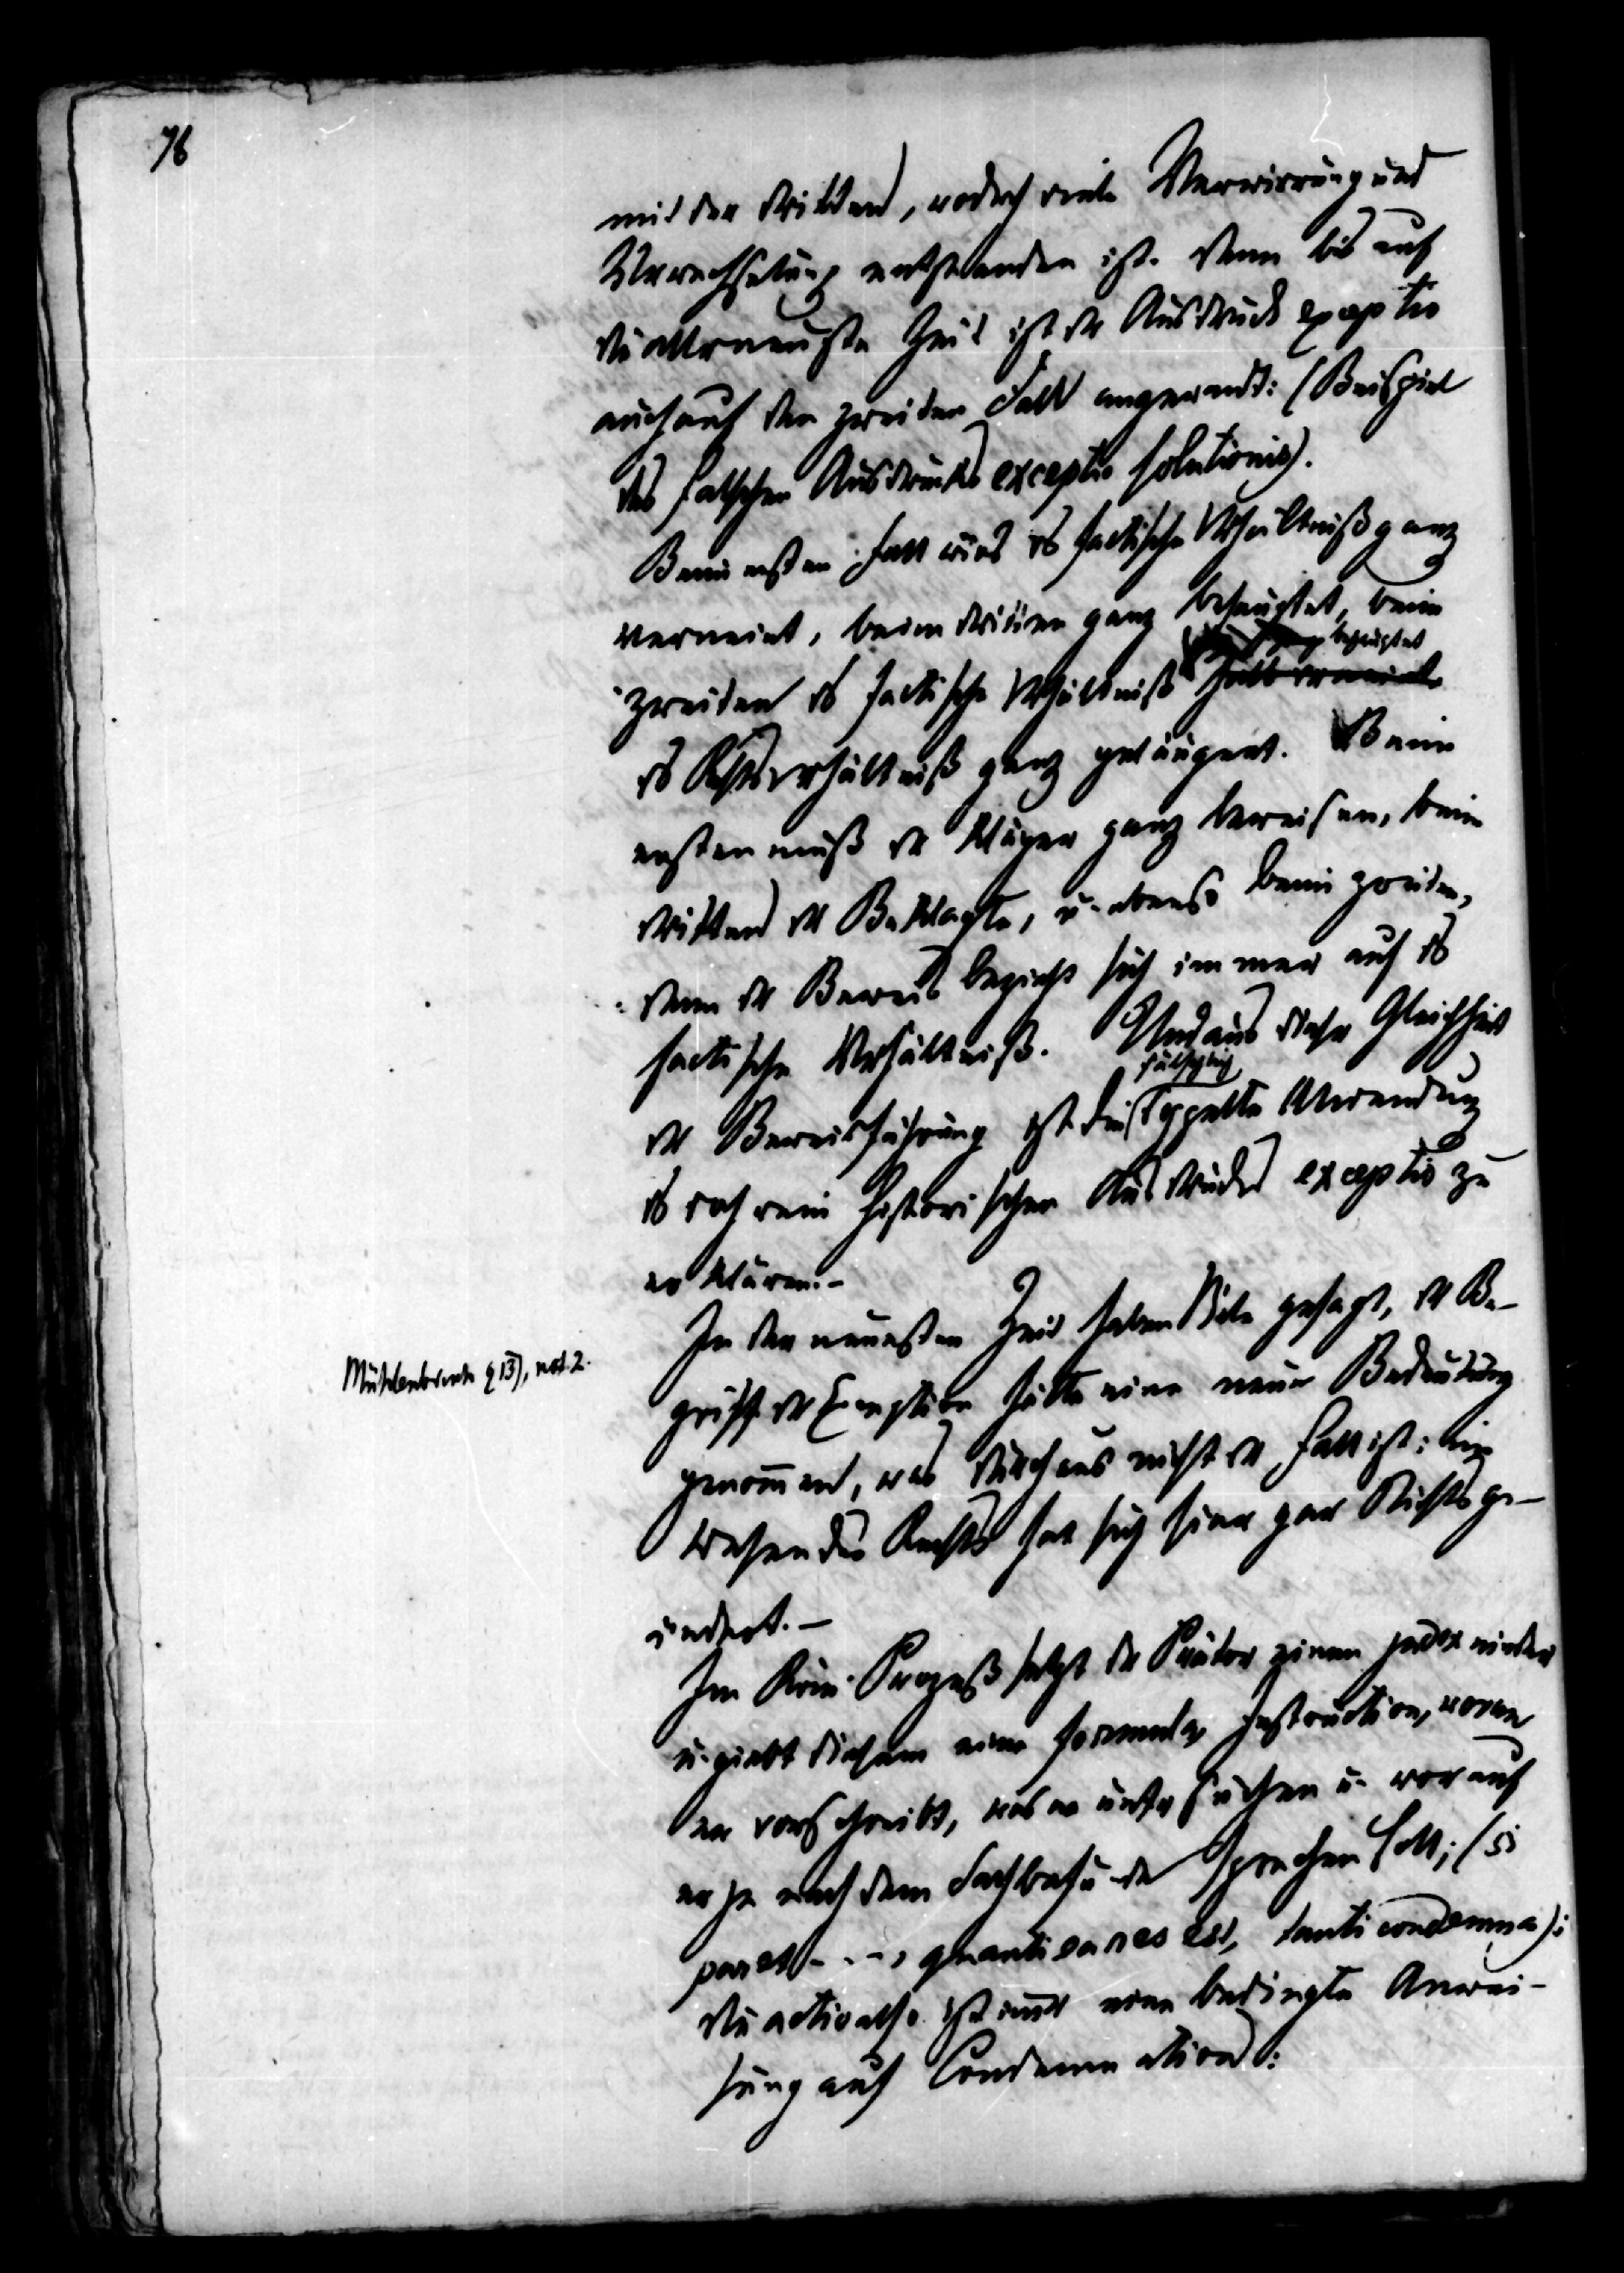 76
mit der dritten, wodurch viele Verwirrung und
Verwechselung entstanden ist. Denn bis auf
die allerneuste Zeit ist der Ausdruck exceptio
auch auf den zweiten Fall angewandt: (Beispiel
des falschen Ausdrucks exceptio solutionis).
Beim ersten Fall wird ds factische Verhältniß ganz
verneint, beim dritten ganz behauptet, beim
zweiten ds factische Verhältniß behauptet
ds Rechtsverhältniß ganz geläugnet. Beim
ersten muß der Kläger ganz beweisen, beim
dritten der Beklagte, u. ebenso beim zweiten,
denn der Beweis bezieht sich immer auf ds
factische Verhältniß. Und aus dieser Gleichheit
der Beweisführung ist die fälschlich doppelte Anwendung
ds rein historischen Ausdrucks exceptio zu
erklären.-
In der neuesten Zeit haben Viele gesagt, der Be-
Mühlenbruch § 137, not. 2.
griff der Exception hätte eine neue Bedeutung
genommen, was durchaus nicht der Fall ist: im
Wesen des Rechts hat sich hier gar Nichts ge-
ändert.-
Im Röm. Prozeß setzt der Prätor einen judex nieder
u. giebt diesem eine formula, Instruction, worin
er vorschreibt, was er untersuchen u. worauf
er je nach dem Sachbefunde sprechen soll; (si
paret - - -, quanti ea res est, tanti condemna):
die actio also ist nur eine bedingte Anwei-
sung auf Condemnation: